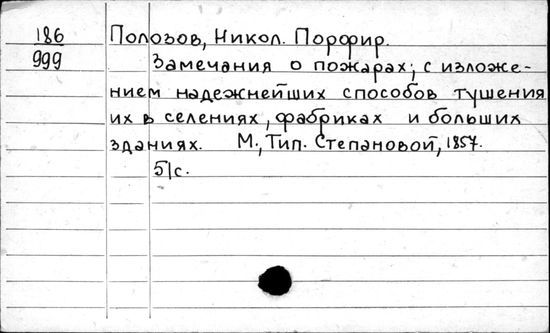 186 Полозов, Никол. Порфир.
999 Замечания о пожарах, с изложе-
нием надежнейших способов тушения
их в селениях, фабриках и больших
зданиях. М., Тип. Степановой, 1857.
51с.